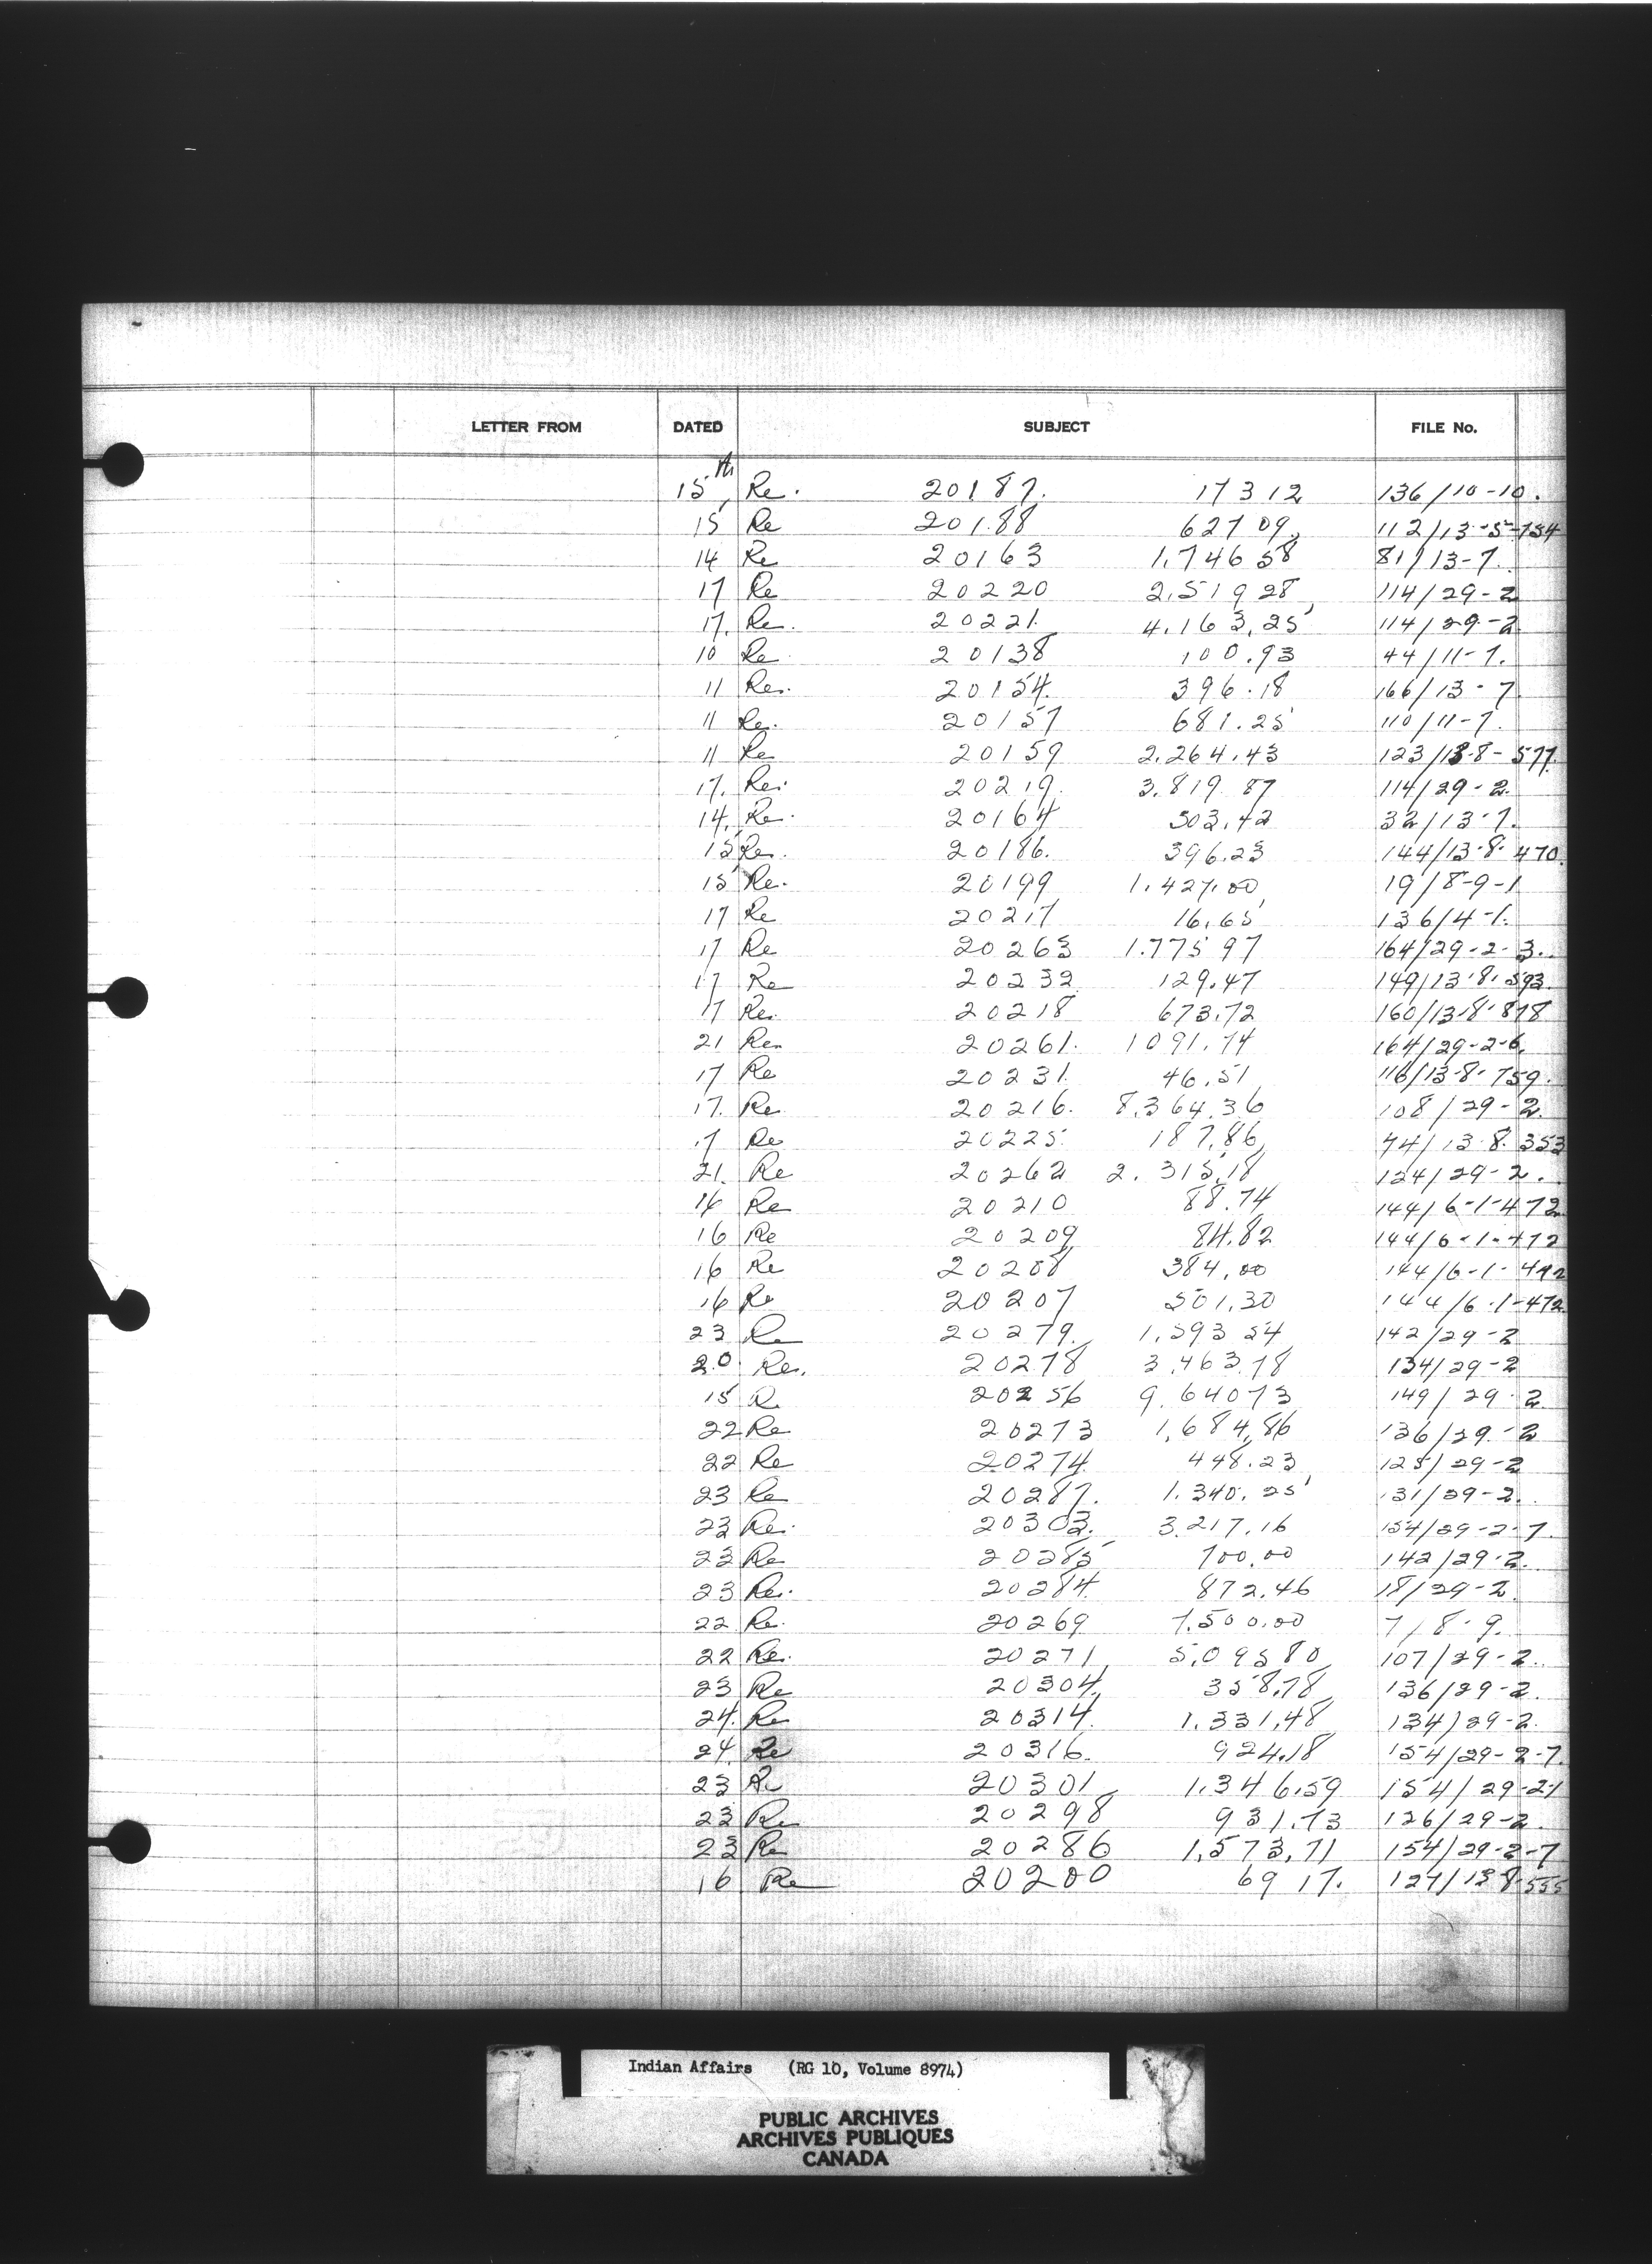 LETTER FROM DATED SUBJECT FILE No.
15 Re. 20187. 173 12 136/10-10.
15 Re 20188 627 09, 112/13-5-754
14 Re 20163 1,746 58 81/13-7.
17 Re 20220 2,519 28 114/29-2
17. Re. 20221. 4.163,25 114/29-2
10 Re 20138 100.93 44/11-7.
11 Re. 20154. 396.18 166/13-7
11 Re. 20157 681.25 110/11-7.
11 Re 20159 2,264.43 123/13-8-577.
17. Re. 20219. 3.819 87 114/29-2.
14. Re. 20164 503.42 32/13-7.
15 Re. 20186. 396.23 144/13-8-470.
15 Re. 20199 1,427.00 19/8-9-1
17 Re 20217 16.65 136/4-1.
17 Re 20263 1.775 97 164/29-2-3.
17 Re 20232 129.47 149/13-8-593.
17 Re. 20218 673.72 160/13-8-878
21 Re. 20261. 1091.74 164/29-2-6.
17 Re 20231. 46.51 116/13-8-759.
17. Re. 20216. 8,364.36 108/29-2.
17 Re 20225. 187.86 74/13-8-353
21. Re 20262 2.315.18 124/29-2.
16 Re 20210 88.74 144/6-1-472
16 Re 20209 84.82 144/6-1-472
16 Re 20208 384.00 144/6-1-472
16 Re 20207 501.30 144/6-1-472
23 Re 20279. 1,593 54 142/29-2
20. Re. 20278 3,463.78 134/29-2
15 Re 20256 9,640 73 149/29-2
22 Re 20273 1,684,86 136/29-2
22 Re 20274. 448.23 125/29-2
23 Re 20287. 1.340.25 131/29-2.
23 Re. 20303. 3.217.16 154/29-2-7.
22 Re 20285 700.00 142/29-2.
23 Re. 20284. 872.46 18/29-2.
22 Re. 20269 7.500.00 7/8-9.
22 Re. 20271 5,095 80 107/29-2.
23 Re 20304. 358.78 136/29-2.
24. Re 20314. 1.331.48 134/29-2.
24. Re 20316. 924.18 154/29-2-7.
23 Re 20301 1.346.59 154/29-21
23 Re 20298 931.73 126/29-2.
23 Re 20286 1,573.71 154/29-2-7
16 Re 20200 69 17. 127/138-555
Indian Affairs (RG 10, Volume 8974)
PUBLIC ARCHIVES
ARCHIVES PUBLIQUES
CANADA